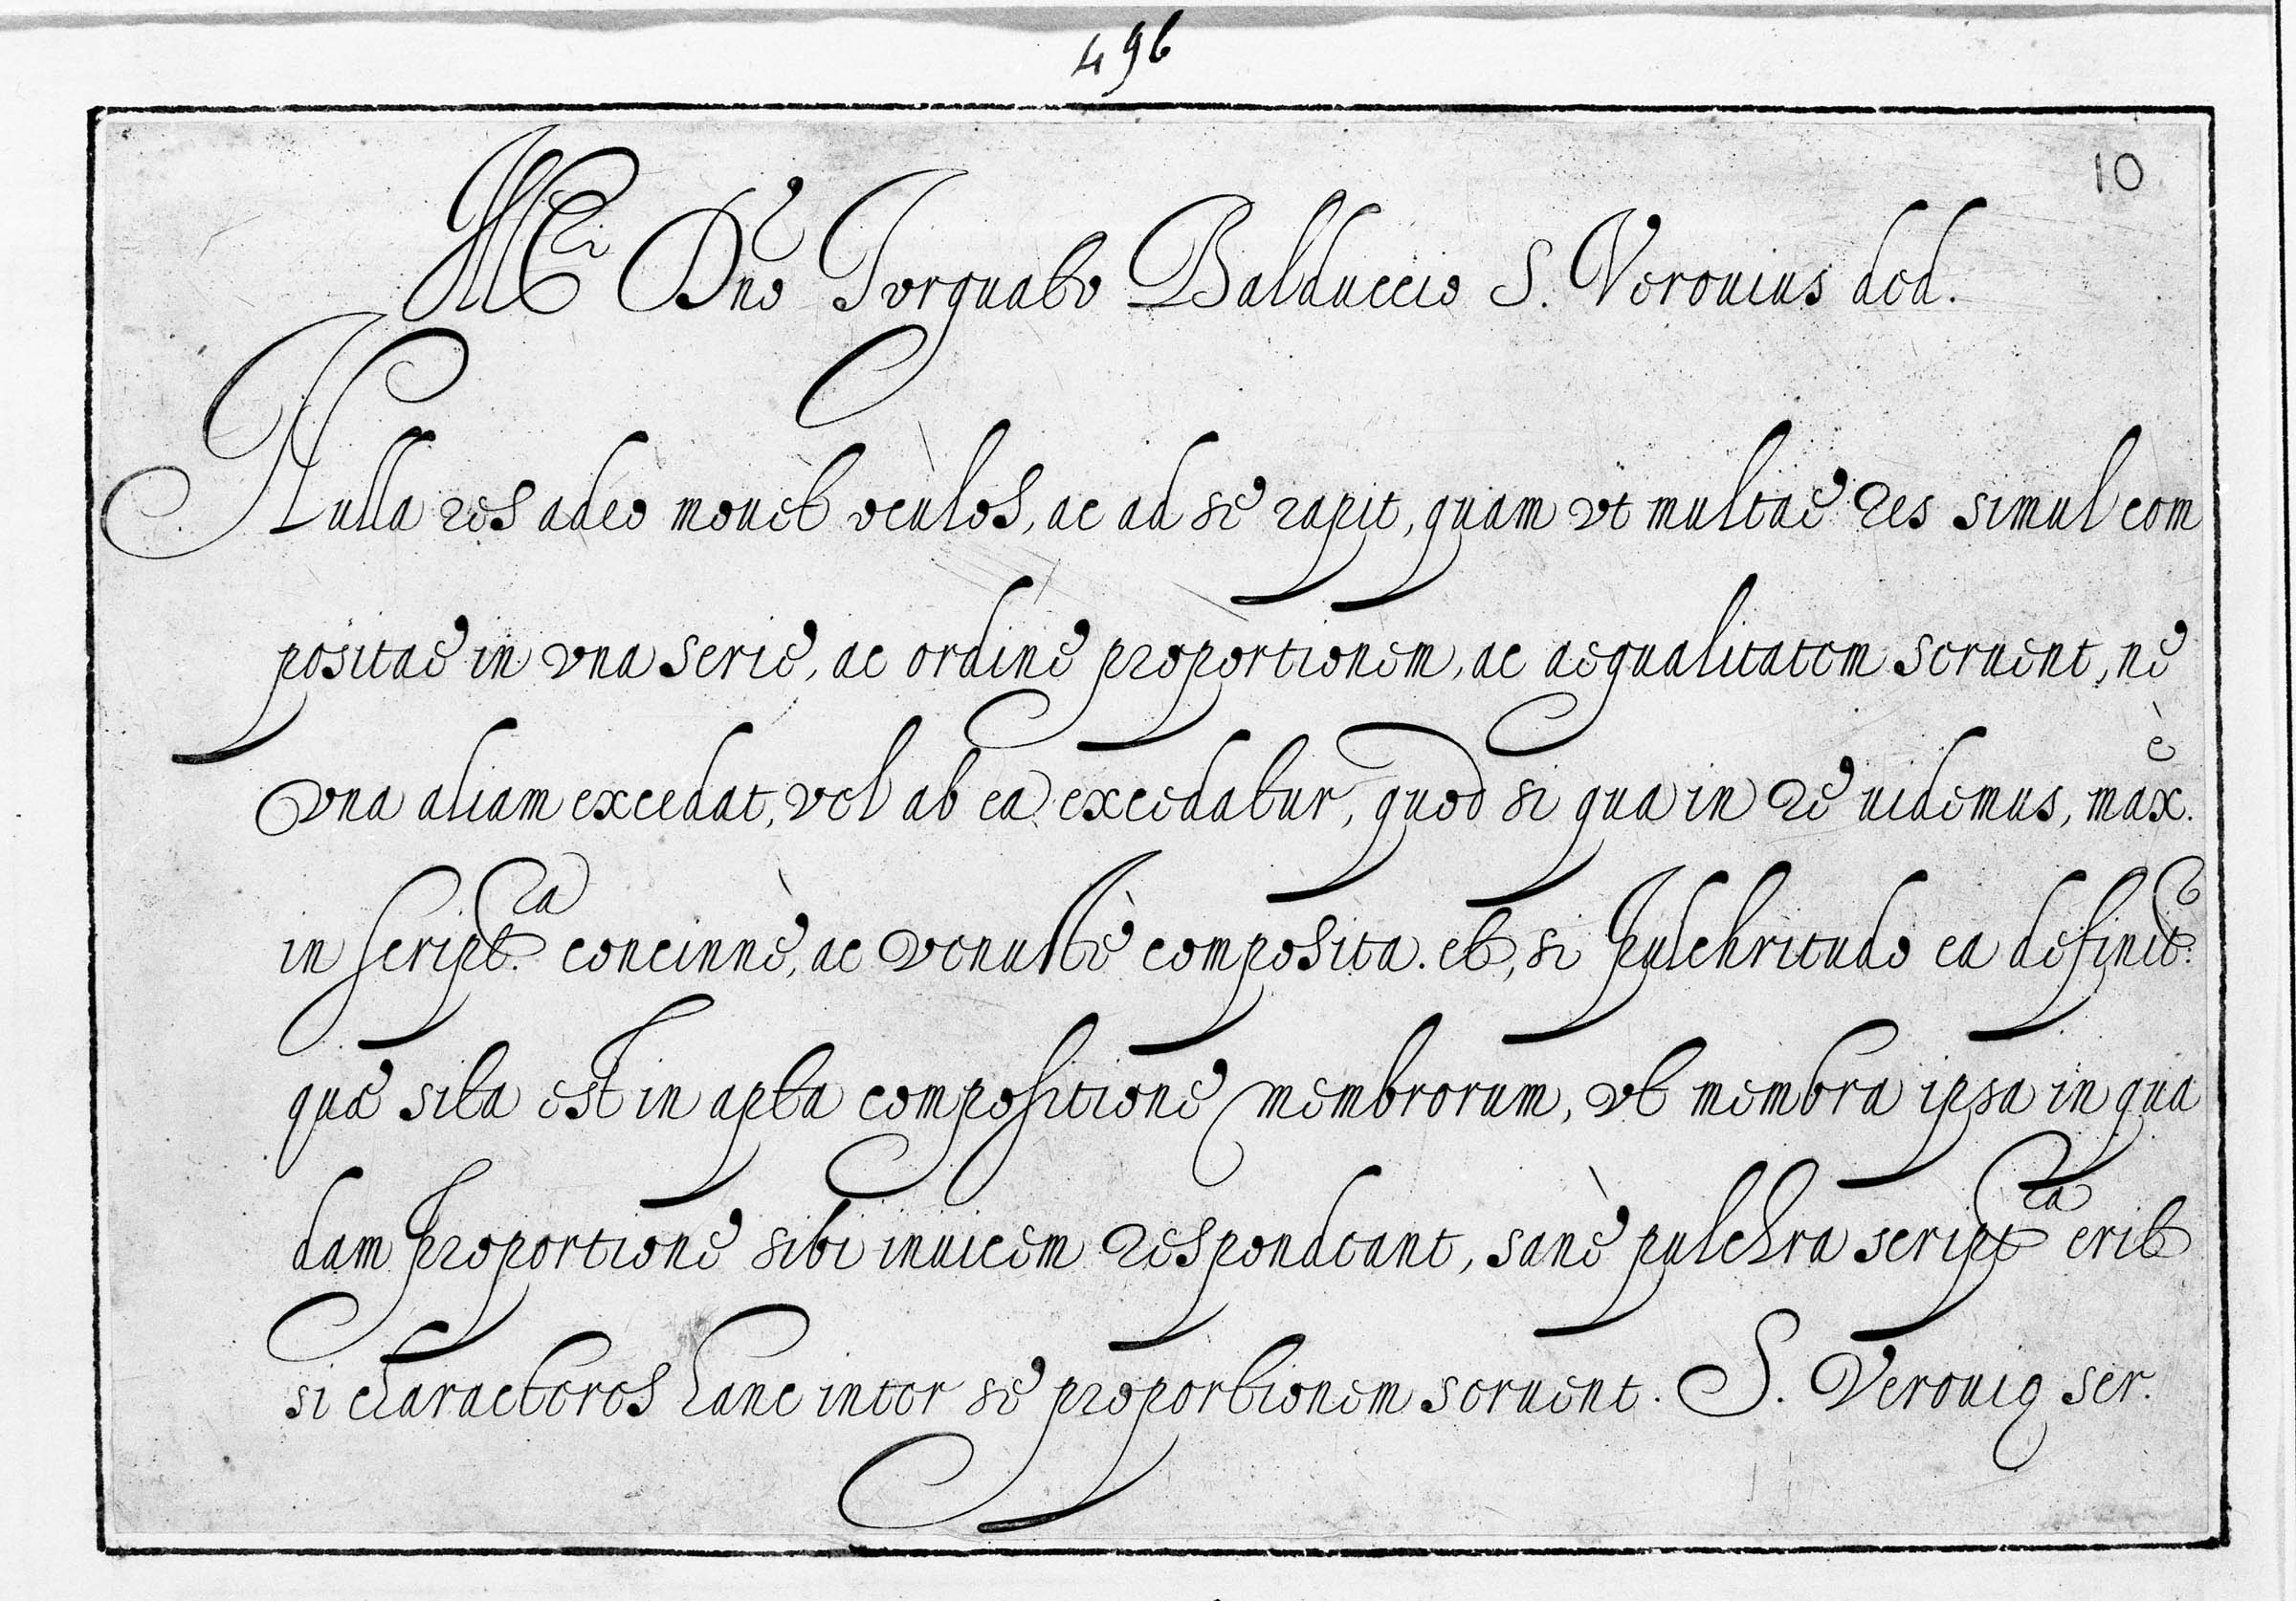 496
10
Ill.ri Dno Torquato Balduccio S. Verouius ded.
Nulla res adeò mouèt òculos, ac ad se rapit, quam vt multae res simul com
positae in vna serie, ac ordine proportionem, ac aequalitatem seruent, ne
vna aliam excedat, vel ab ea excedatur, quod si qua in re uidemus, max.è
in script.ra concinnè, ac venustè composita. et, si pulchritudo ea definit.r
quae sita est in apta compositione membrorum, vt membra ipsa in qua
dam proportione sibi inuicem respondeant, sanè pulchra script.ra erit
si characteres hanc inter se proportionem seruent. S. Verouiꝰ scr.